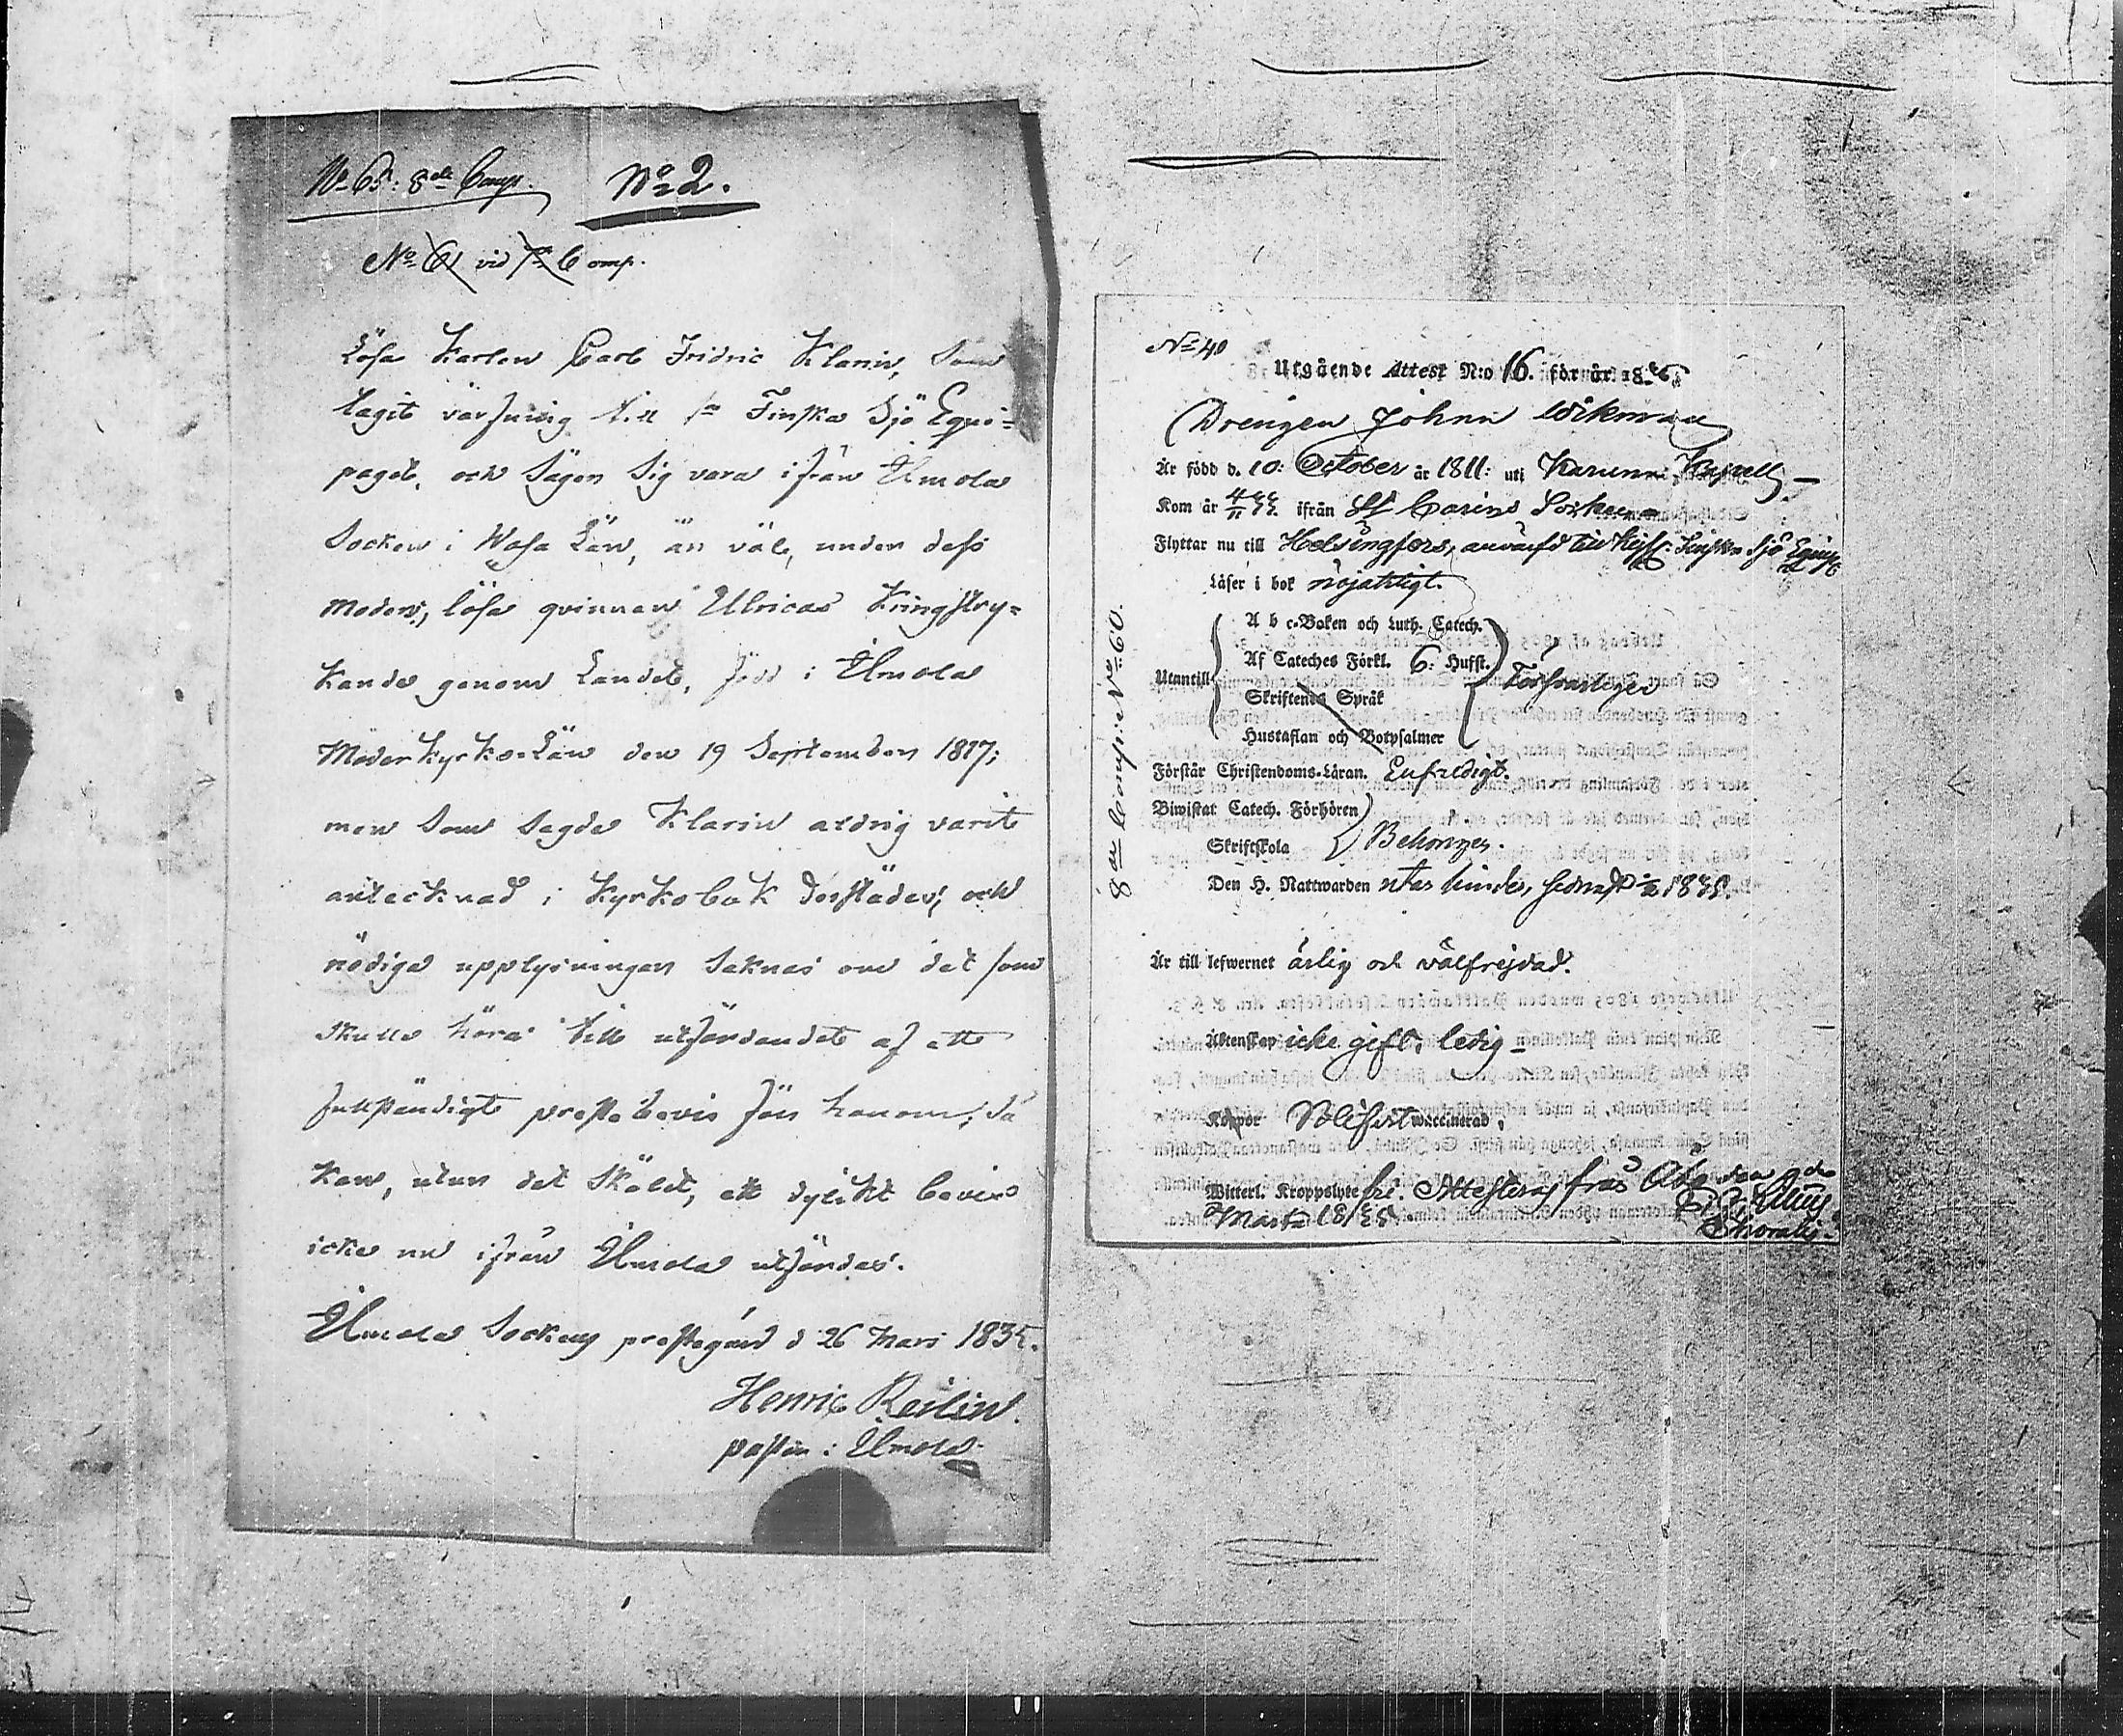 No 65: 8de Comp. No 2.
No 61 vid 7de Comp.
Lösa Karlen Carl Fridric Klarin, Som
tagit värfning till 1sta Finska Sjö Equi=
paget, och Säger Sig vara ifrån Ilmola
Socken i Wasa Län, är väl, under dess
moders, lösa qvinnan Ulricas Kringstry=
kande genom Landet, född i Ilmola
Moderkyrko-Län den 19 September 1817;
men Som Sagde Klarin aldrig varit
antecknad i Kyrkobok derstädes, och
nödiga upplysningar Saknas om det som
Skulle höra till utfärdandet af ett
fullständigt prestabevis för honom, så
kan, utan det Skäldt, ett dylikt bevis
icke nu ifrån Ilmola utfärdas.
Ilmola Sockens prestegård d 26 Mars 1835.
Henric Reilin.
pastor i Ilmola
No 40
Utgående Attest N:o 16. för år 18
Drengen Johan Wikman
Är född d. 10: October år 1811: uti Karuna Kapell
Kom år ifrån St Carins Socken
Flyttar nu till Helsingfors, anwärfd till Kejs: Finska Sjö Equip
Läser i bok nöjaktigt.
A b c-Boken och Luth. Catech.
Af Cateches Förkl. 6: Hufst.
Utantill Försvarligen
Skriftenes Språk
Hustaflan och Botpsalmer
Förstår Christendoms-Läran. Enfaldigt.
Biwistat Catech. Förhören
Skriftskola Behörigen.
Den H. Nattwarden utan hinder, sednast 1835.
8de Comp: No 60.
Är till lefwernet ärlig och wälfrejdad.
Äktenskap icke gift. ledig
Koppor waccinerad.
Witterl. Kroppslyte fri. Attesteras från Åbo den 2de
Martii 1835